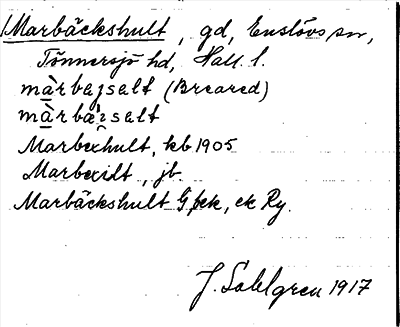 Marbäckshult, gd, Enslövs sn,
Tönnersjö hd, Hall. l.
màrbajsalt (Breared)
màrbai̯salt
Marbexhult, kb 1905
Marbexilt, jb
Marbäckshult Gfbk, ek Ry.
J. Sahlgren 1917